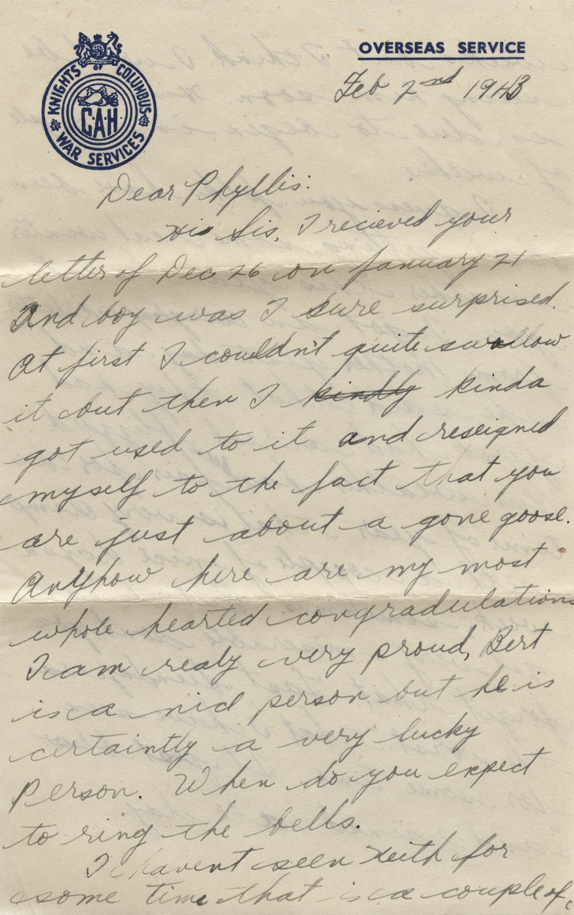 OVERSEAS SERVICE
KNIGHTS OF COLUMBUS
CAH
WAR SERVICES
Feb 2nd 1943
Dear Phyllis:
His Sis, I recieved your
letter of Dec 26 on January 21
And boy was I sure surprised.
At first I couldn't quite swallow
it but then I kindly kinda
got used to it and reseigned
myself to the fact that you
are just about a gone goose.
Anyhow here are my most
whole hearted congradulations
I am realy very proud, Bert
is a nice person but he is
certaintly a very lucky
Person. When do you expect
to ring the bells.
I havent seen Keith for
some time that is a couple of